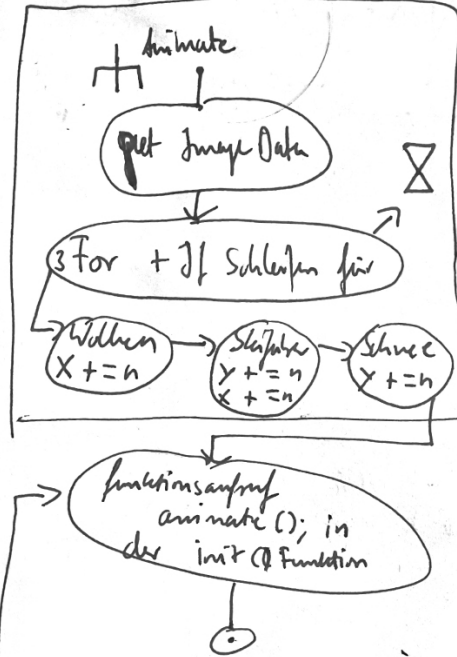 Animate
put Image Data
3 For + If Schleifen für
Wolken
x += n
Skifahrer
y += n
x += n
Schnee
y += n
funktionsaufruf
animate (); in
der init () Funktion